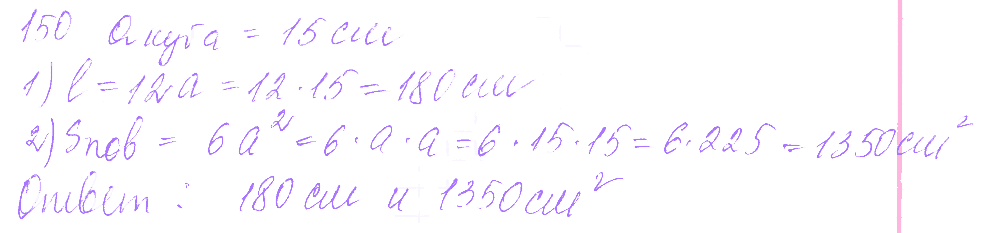 150 a куба = 15 см
1) l = 12a = 12 · 15 = 180 см
2) Sпов = 6a² = 6 · a · a = 6 · 15 · 15 = 6 · 225 = 1350 см²
Ответ : 180 см и 1350 см²